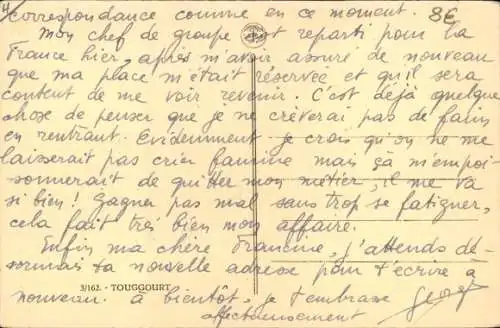 4
correspondance comme en ce moment. 8€
Mon chef de groupe est reparti pour la
France hier, après m'avoir assuré de nouveau
que ma place m'était réservée et qu'il sera
content de me voir revenir. C'est déjà quelque
chose de penser que je ne crèverai pas de faim
en rentrant. Evidemment je crois qu'on ne me
laisserait pas crier famine mais ça m'empoi-
sonnerait de quitter mon métier, il me va
si bien! Gagner pas mal sans trop se fatiguer,
cela fait très bien mon affaire.
Enfin ma chère Francine, j'attends dé-
sormais ta nouvelle adresse pour t'écrire à
3/162. - TOUGGOURT
nouveau. à bientôt, je t'embrasse
affectueusement